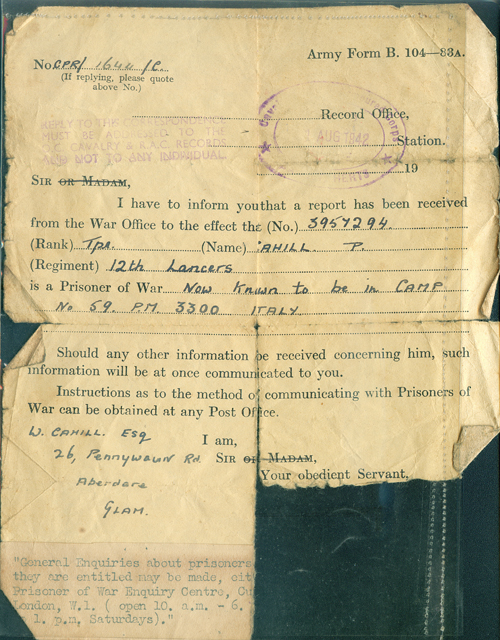 Army Form B. 104—83A.
No CPR/ 1644 /C.
(If replying, please quote
above No.)
REPLY TO THE CORRESPONDENCE
MUST BE TO THE
CAVALRY R.A.C. RECORDS
AND NOT TO ANY INDIVIDUAL
Record Office,
AUG 1942
Station.
19
SIR OR MADAM,
I have to inform you that a report has been received
from the War Office to the effect tha (No.) 3957294.
(Rank) Tpr. (Name) AHILL P.
(Regiment) 12th Lancers
is a Prisoner of War Now Known to be in CAMP
No 59. P.M. 3300 ITALY
Should any other information be received concerning him, such
information will be at once communicated to you.
Instructions as to the method of communicating with Prisoners of
War can be obtained at any Post Office.
W. CAHILL. ESQ
I am,
26, Pennywaun Rd. SIR OR MADAM,
Your obedient Servant,
Aberdare
GLAM.
"General Enquiries about prisoners
they are entitled may be made, eit
Prisoner of War Enquiry Centre, Cu
London, W.1. ( open 10. a.m. - 6.
1. p.m. Saturdays)."